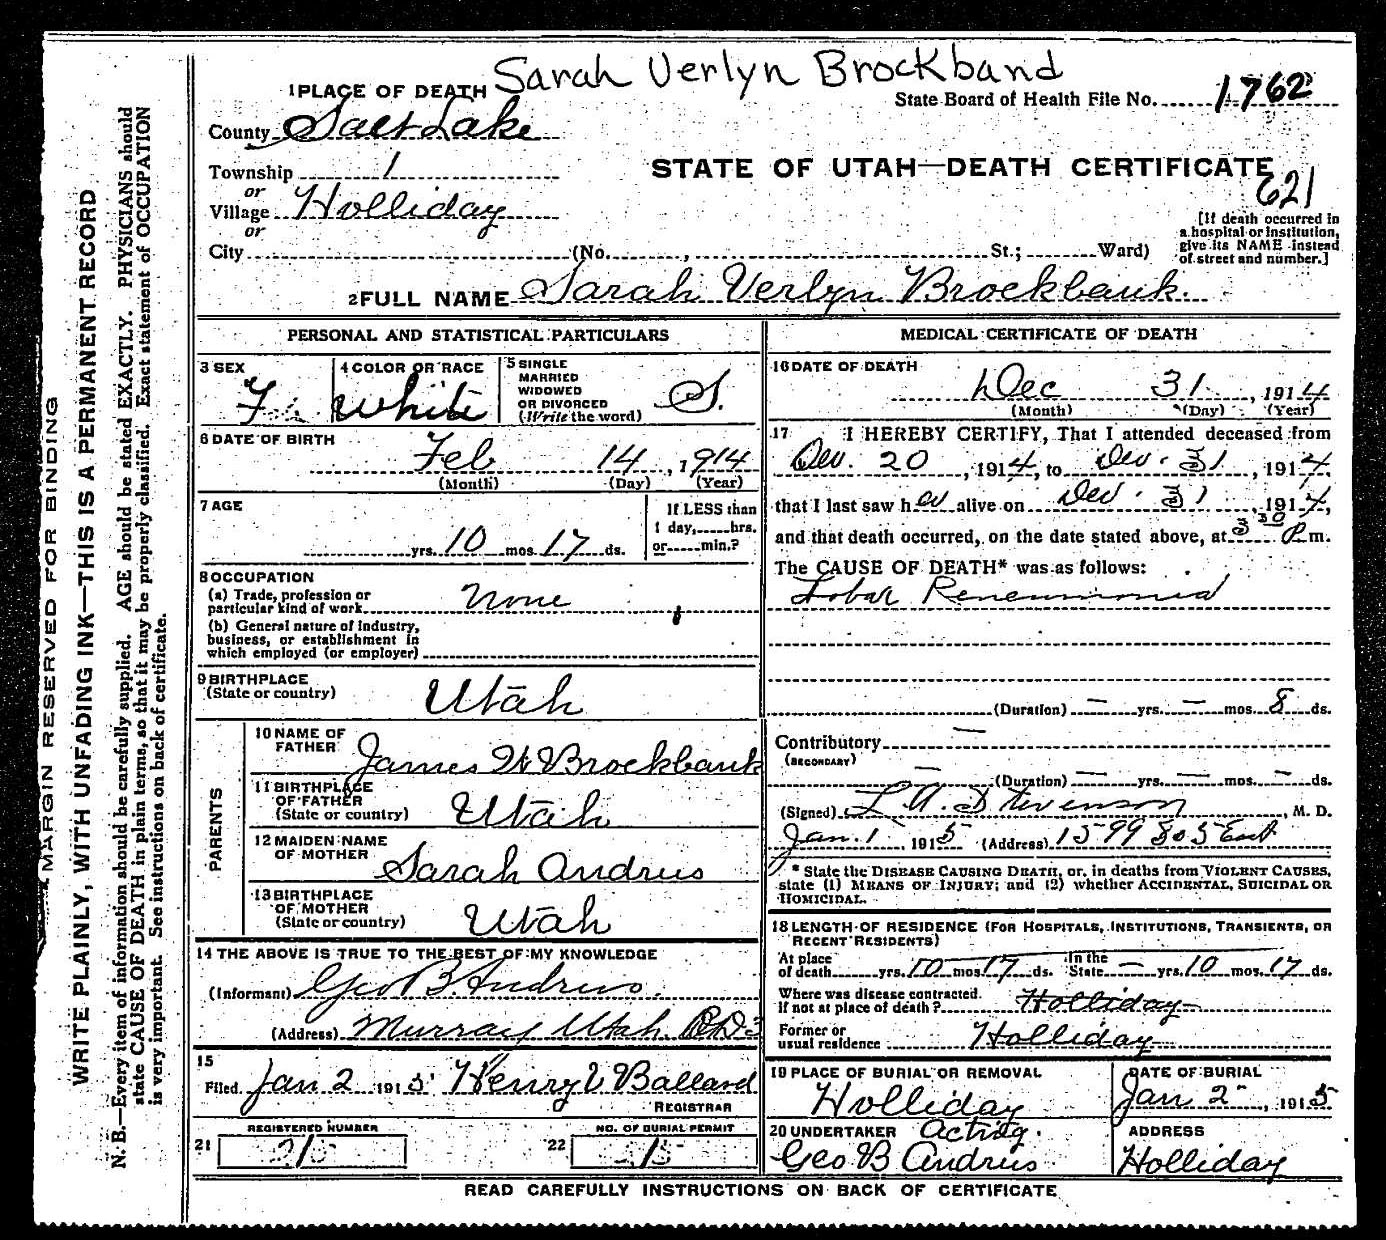 Sarah Verlyn Brockband
1 PLACE OF DEATH
State Board of Health File No. 1762
County Salt Lake
STATE OF UTAH—DEATH CERTIFICATE
621
Township 1
or
Village Holliday
or
City (No. , St.; Ward)
[If death occurred in
a hospital or institution,
give its NAME instead
of street and number.]
2 FULL NAME Sarah Verlyn Brockbank
PERSONAL AND STATISTICAL PARTICULARS
3 SEX
F.
4 COLOR OR RACE
White
5 SINGLE
MARRIED
WIDOWED
OR DIVORCED
(Write the word)
S.
6 DATE OF BIRTH
Feb 14, 1914
(Month) (Day) (Year)
7 AGE
yrs. 10 mos. 17 ds.
If LESS than
1 day, hrs.
or min.?
8 OCCUPATION
(a) Trade, profession or
particular kind of work None
(b) General nature of industry,
business, or establishment in
which employed (or employer)
9 BIRTHPLACE
(State or country)
Utah
PARENTS
10 NAME OF
FATHER
James W Brockbank
11 BIRTHPLACE
OF FATHER
(State or country)
Utah
12 MAIDEN NAME
OF MOTHER
Sarah Andrus
13 BIRTHPLACE
OF MOTHER
(State or country)
Utah
14 THE ABOVE IS TRUE TO THE BEST OF MY KNOWLEDGE
(Informant) Geo B. Andrus.
(Address) Murray Utah R.D. 3
15
Filed Jan 2 1915 Henry V Ballard
REGISTRAR
REGISTERED NUMBER
21
NO. OF BURIAL PERMIT
22
MEDICAL CERTIFICATE OF DEATH
16 DATE OF DEATH
Dec 31, 1914
(Month) (Day) (Year)
17 I HEREBY CERTIFY, That I attended deceased from
Dec. 20, 1914, to Dec. 31, 1914,
that I last saw her alive on Dec. 31, 1914,
and that death occurred, on the date stated above, at 3 30 P.m.
The CAUSE OF DEATH* was as follows:
Lobar Pneumonia
(Duration) — yrs. — mos. 8 ds.
Contributory —
(SECONDARY)
— (Duration) — yrs. — mos. — ds.
(Signed) L. A. Stevenson, M. D.
Jan. 1 1915 (Address) 1599 So 5 East
* State the DISEASE CAUSING DEATH, or, in deaths from VIOLENT CAUSES,
state (1) MEANS OF INJURY; and (2) whether ACCIDENTAL, SUICIDAL OR
HOMICIDAL.
18 LENGTH OF RESIDENCE (FOR HOSPITALS, INSTITUTIONS, TRANSIENTS, OR
RECENT RESIDENTS)
At place
of death yrs. 10 mos. 17 ds.
In the
State — yrs. 10 mos. 17 ds.
Where was disease contracted
if not at place of death? Holliday
Former or
usual residence Holliday
19 PLACE OF BURIAL OR REMOVAL
Holliday
DATE OF BURIAL
Jan 2, 1915
20 UNDERTAKER Acting.
Geo B Andrus
ADDRESS
Holliday
READ CAREFULLY INSTRUCTIONS ON BACK OF CERTIFICATE
MARGIN RESERVED FOR BINDING
WRITE PLAINLY, WITH UNFADING INK—THIS IS A PERMANENT RECORD
N. B.—Every item of information should be carefully supplied. AGE should be stated EXACTLY. PHYSICIANS should
state CAUSE OF DEATH in plain terms, so that it may be properly classified. Exact statement of OCCUPATION
is very important. See instructions on back of certificate.